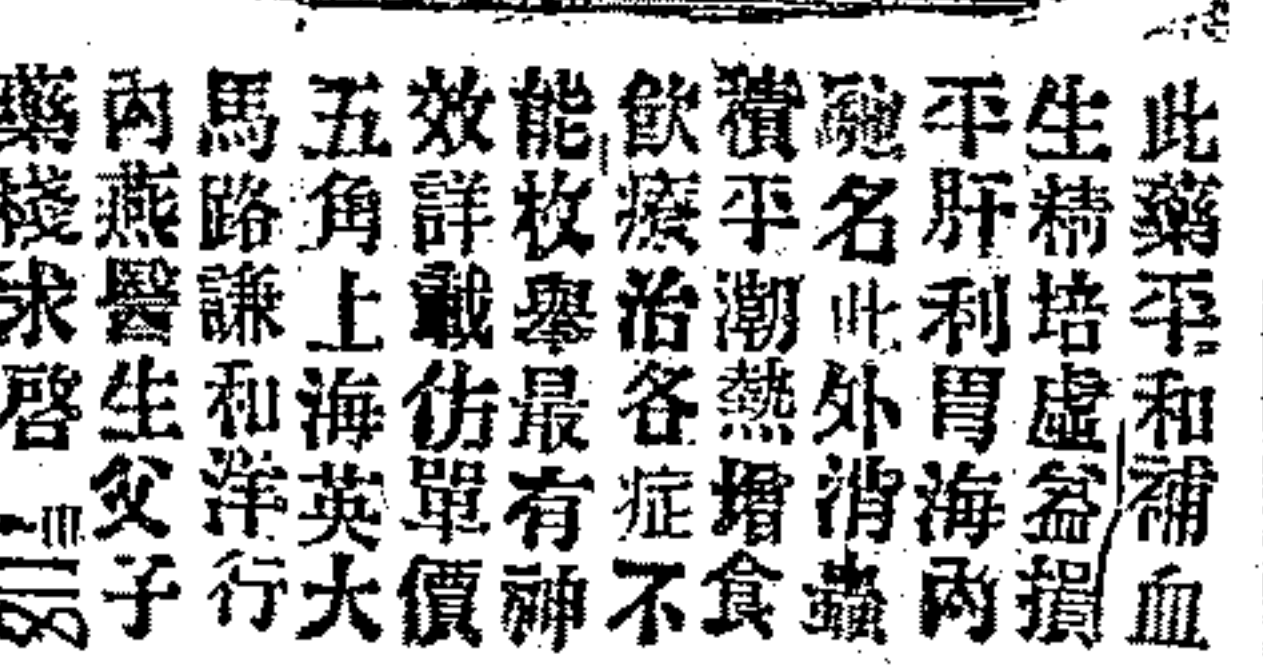 此藥平和補血
生精培虛益損
平肝利胃海內
馳名此外消蟲
積平潮熱增食
飲療治各症不
能枚舉最有神
效詳載仿單價
五角上海英大
馬路謙和洋行
內燕醫生父子
藥棧求啓